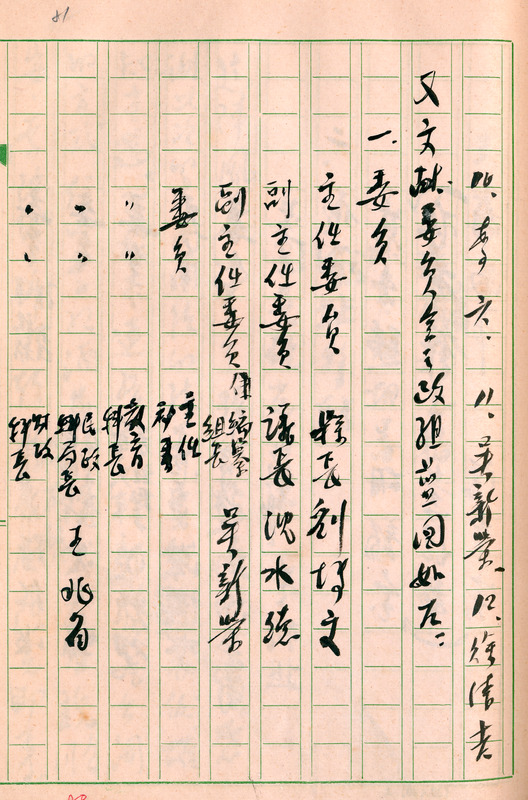 81
11、吳新榮、12、徐清吉
又文献委員会之改組藍図如左：
一、委員
主任委員 縣長 劉博文
副主任委員 議長 沈水德
副主任委員 兼編纂組長 吳新榮
委員 主任秘書
〃 〃 教育科長
〃 〃 民政局長 王兆
〃 〃 財政科長